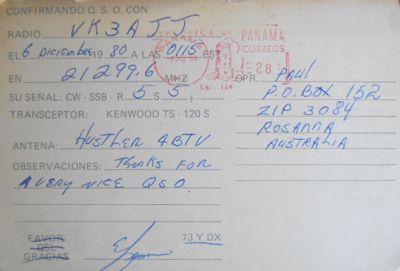 CONFIRMANDO Q. S. O. CON
RADIO VK3AJJ
EL 6 Diciembre 19 80 A LAS 0115 EST
EN 21299.6 MHZ OPR. Paul
SU SEÑAL: CW - SSB - R 5 S 5
P.O. BOX 152
TRANSCEPTOR: KENWOOD TS - 120 S
ZIP 3084
ROSANNA
AUSTRALIA
ANTENA: HUSTLER 4BTV
OBSERVACIONES: Thanks FOR
A VERY NICE QSO.
FAVOR
QSL
GRACIAS
73 Y DX
PANAMA
CORREOS
PANAMA